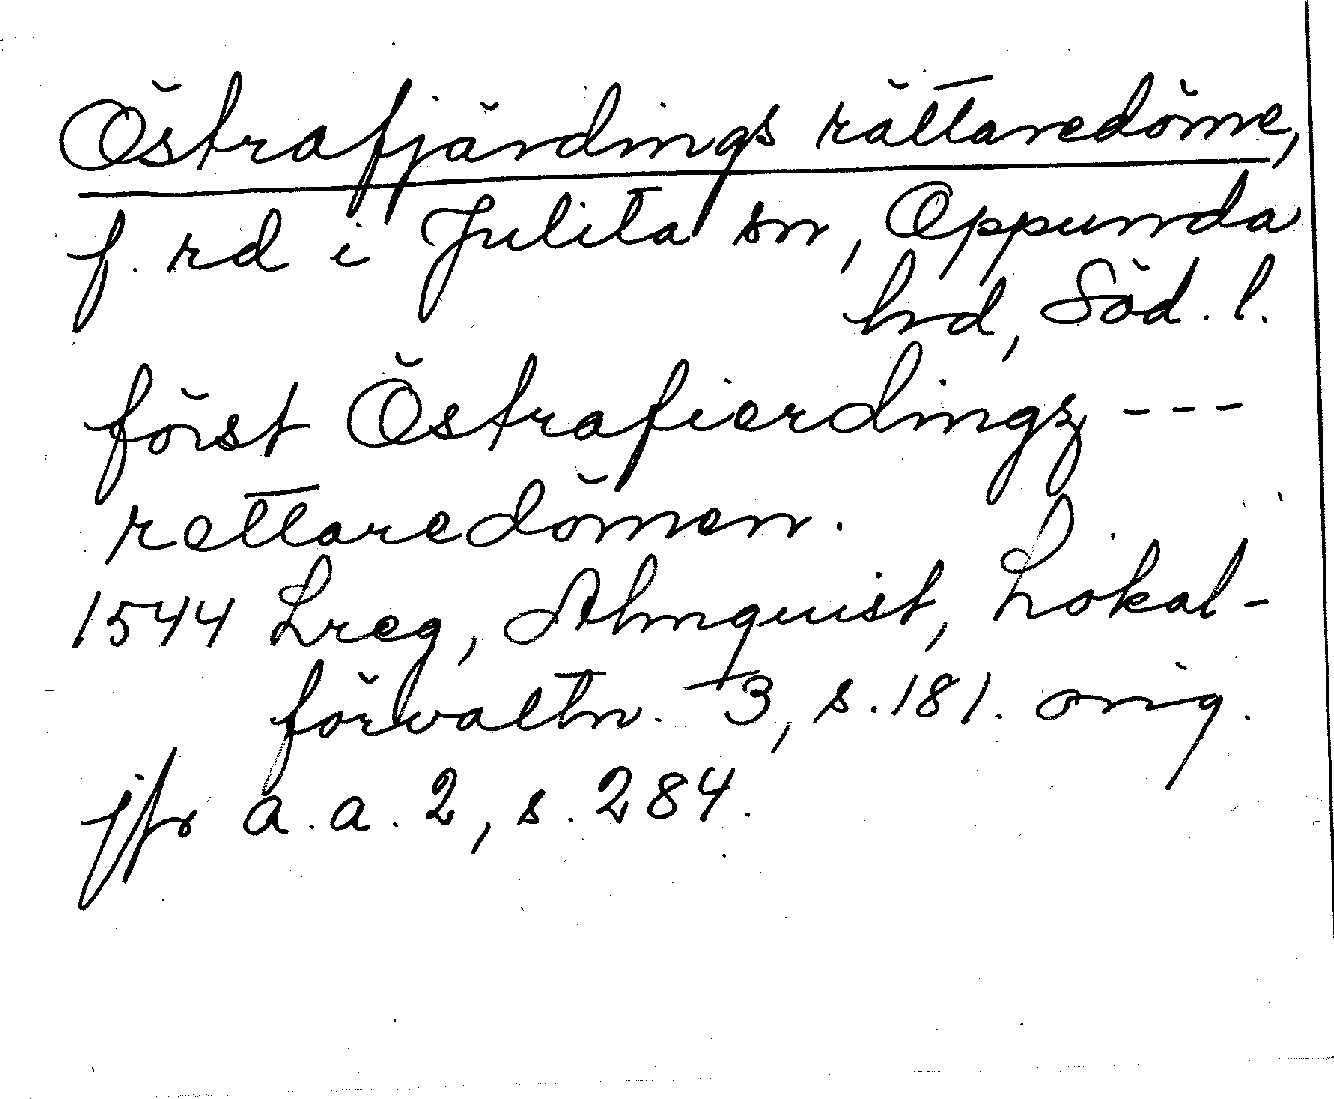 Östrafjärdings rättaredöme,
f. rd i Julita sn, Oppunda
hrd, Söd. l.
först Östrafierdingz ---
rettaredömen.
1544 Lreg, Almquist, Lokal-
förvaltn. 3, s. 181. orig.
jfr a.a. 2, s. 284.